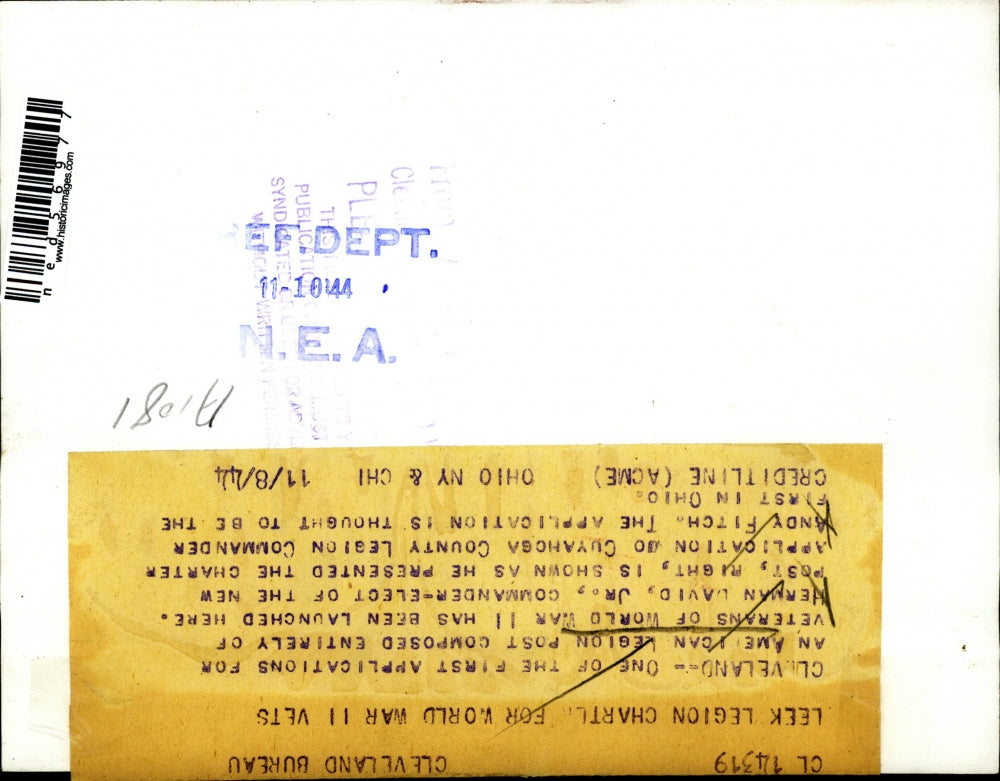 www.historicimages.com
ned56977
REF. DEPT.
11-10-44
N.E.A.
PUBLICATION
SYNDICATED
WITHOUT WRITTEN
A1081
CL 14319 CLEVELAND BUREAU
LEEK LEGION CHARTE. FOR WORLD WAR II VETS
CLEVELAND-- ONE OF THE FIRST APPLICATIONS FOR
AN AMERICAN LEGION POST COMPOSED ENTIRELY OF
VETERANS OF WORLD WAR II HAS BEEN LAUNCHED HERE.
HERMAN DAVID, JR., COMMANDER-ELECT OF THE NEW
POST, RIGHT, IS SHOWN AS HE PRESENTED THE CHARTER
APPLICATION TO CUYAHOGA COUNTY LEGION COMMANDER
ANDY FITCH. THE APPLICATION IS THOUGHT TO BE THE
FIRST IN OHIO.
CREDITLINE (ACME) OHIO NY & CHI 11/8/44